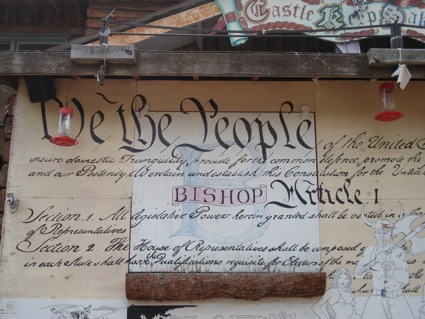 Castle Rep Sal
We the People of the United
insure domestic Tranquility, provide for the common defence, promote the
and our Posterity, do ordain and establish this Constitution for the United
BISHOP Article 1
Section 1. All legislative Power herein granted shall be vested in a
of Representatives
Section 2 The House of Representatives shall be composed
in each State shall have the Qualifications requisite for Electors of the